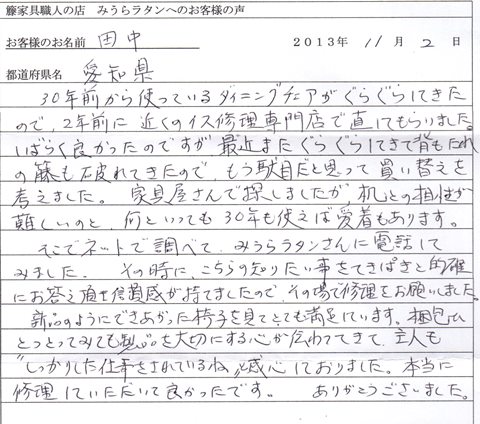 籐家具職人の店 みうらラタンへのお客様の声
お客様のお名前 田中 2013年 11月 2日
都道府県名 愛知県
30年前から使っているダイニングチェアがぐらぐらしてきた
ので、2年前に近くのイス修理専門店で直してもらいました。
しばらく良かったのですが最近またぐらぐらしてきて背もたれ
の籐も破れてきたので、もう駄目だと思って買い替えを
考えました。家具屋さんで探しましたが、机との相性が
難しいのと、何といっても30年も使えば愛着もあります。
そこでネットで調べて、みうらラタンさんに電話して
みました。その時に、こちらの知りたい事をてきぱきと的確
にお答え頂き信頼感が持てましたので、その場で修理をお願いしました。
新品のようにできあがった椅子を見てとても満足しています。梱包ひ
とつとってみても製品を大切にする心が伝わってきて、主人も
"しっかりした仕事をされているね"と感心しておりました。本当に
修理していただいて良かったです。 ありがとうございました。